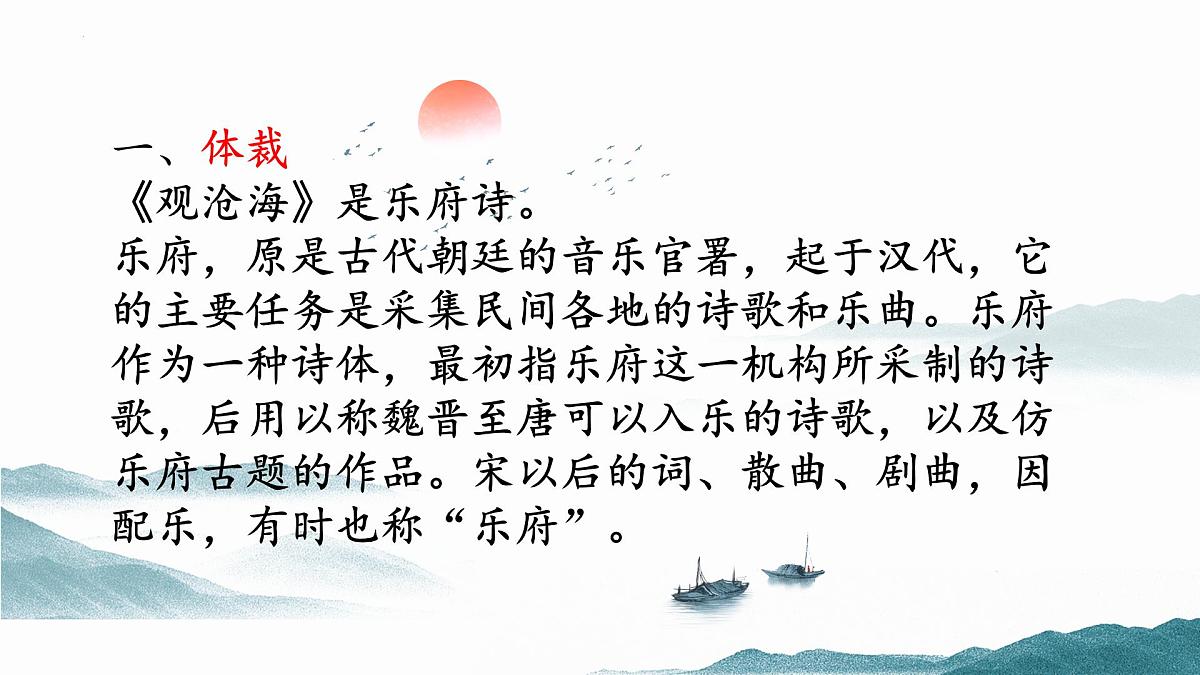 一、体裁
《观沧海》是乐府诗。
乐府，原是古代朝廷的音乐官署，起于汉代，它
的主要任务是采集民间各地的诗歌和乐曲。乐府
作为一种诗体，最初指乐府这一机构所采制的诗
歌，后用以称魏晋至唐可以入乐的诗歌，以及仿
乐府古题的作品。宋以后的词、散曲、剧曲，因
配乐，有时也称“乐府”。